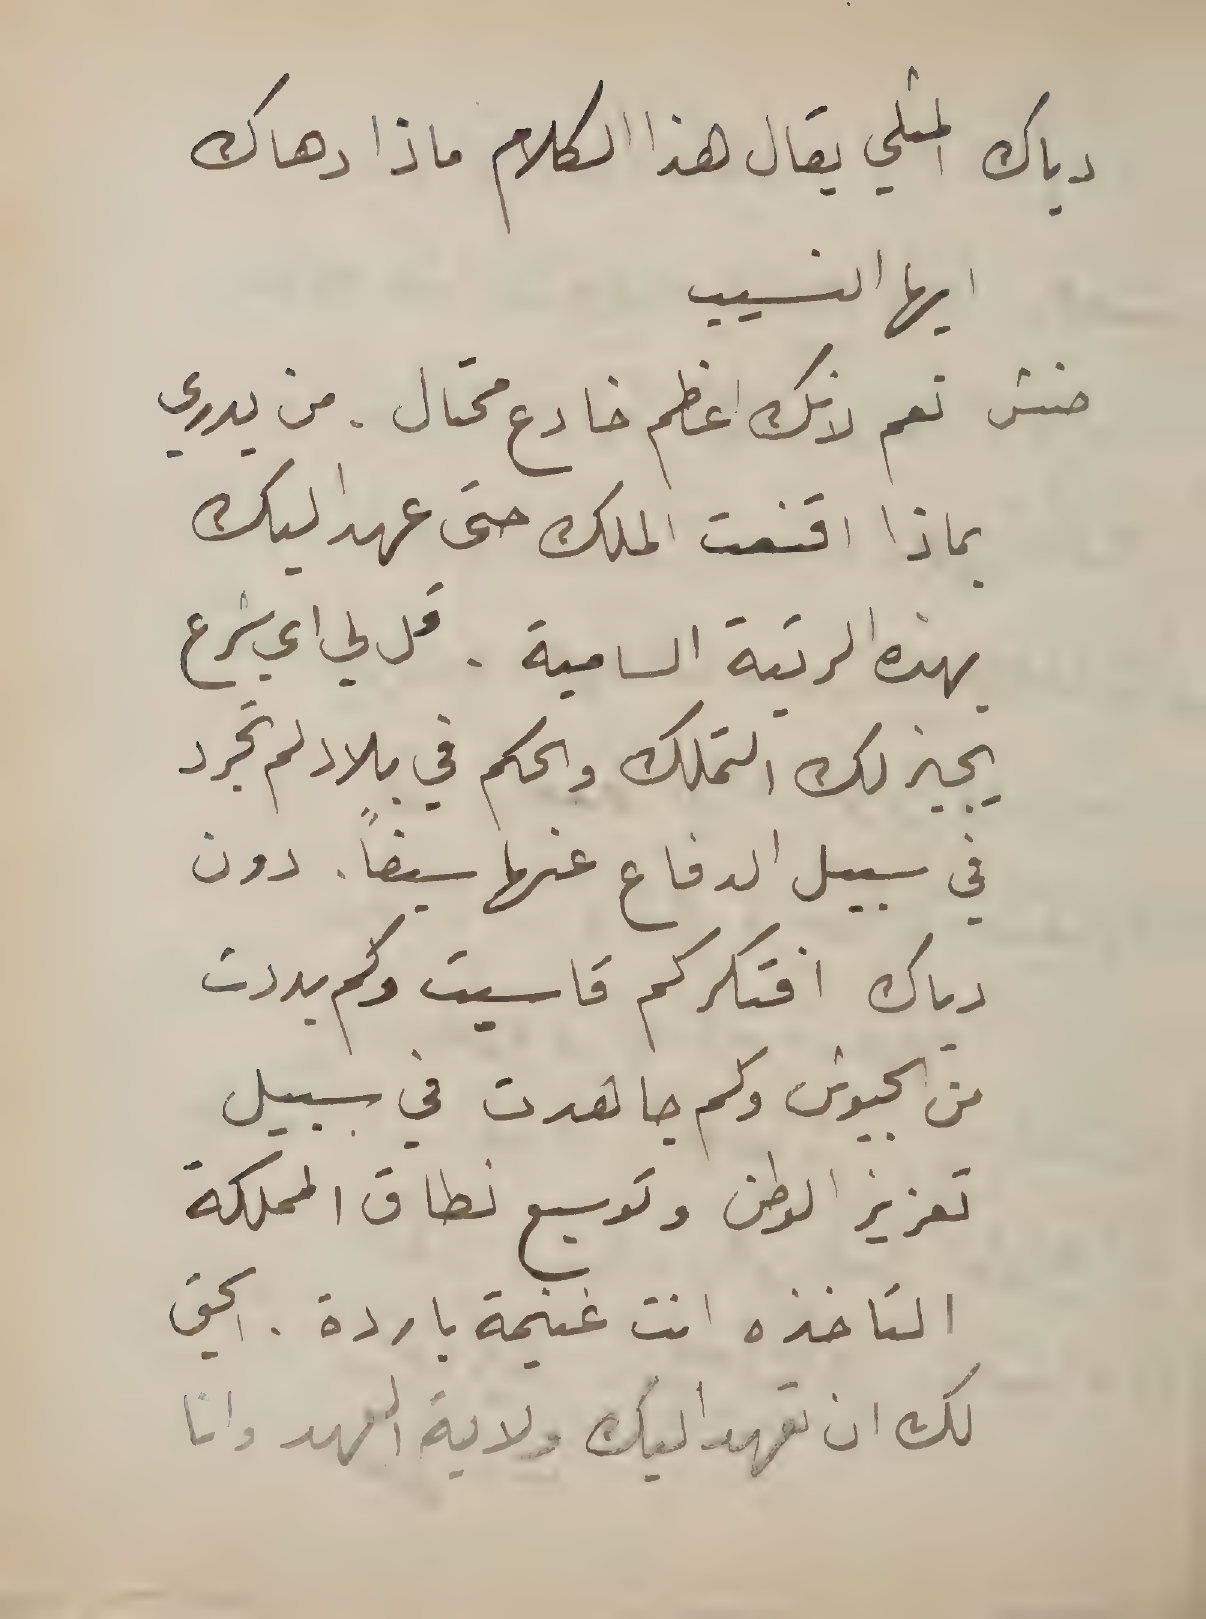 دياك المثلي يقال هذا الكلام ماذا دهاك
ايها النسيب
حنش نعم لانك اعظم خادع محتال . من يدري
بماذا اقنعت الملك حتى عهد اليك
بهذه الرتبة السامية . قل لي اي شرع
يجيز لك التملك والحكم في بلاد لم تجرد
في سبيل الدفاع عنها سيفاً . دون
دياك افتكر كم قاسيت وكم بددت
من الجيوش وكم جاهدت في سبيل
تعزيز الوطن وتوسيع نطاق المملكة
التاخذه انت غنيمة باردة . الحق
لك ان تعهد اليك ولاية العهد وانا